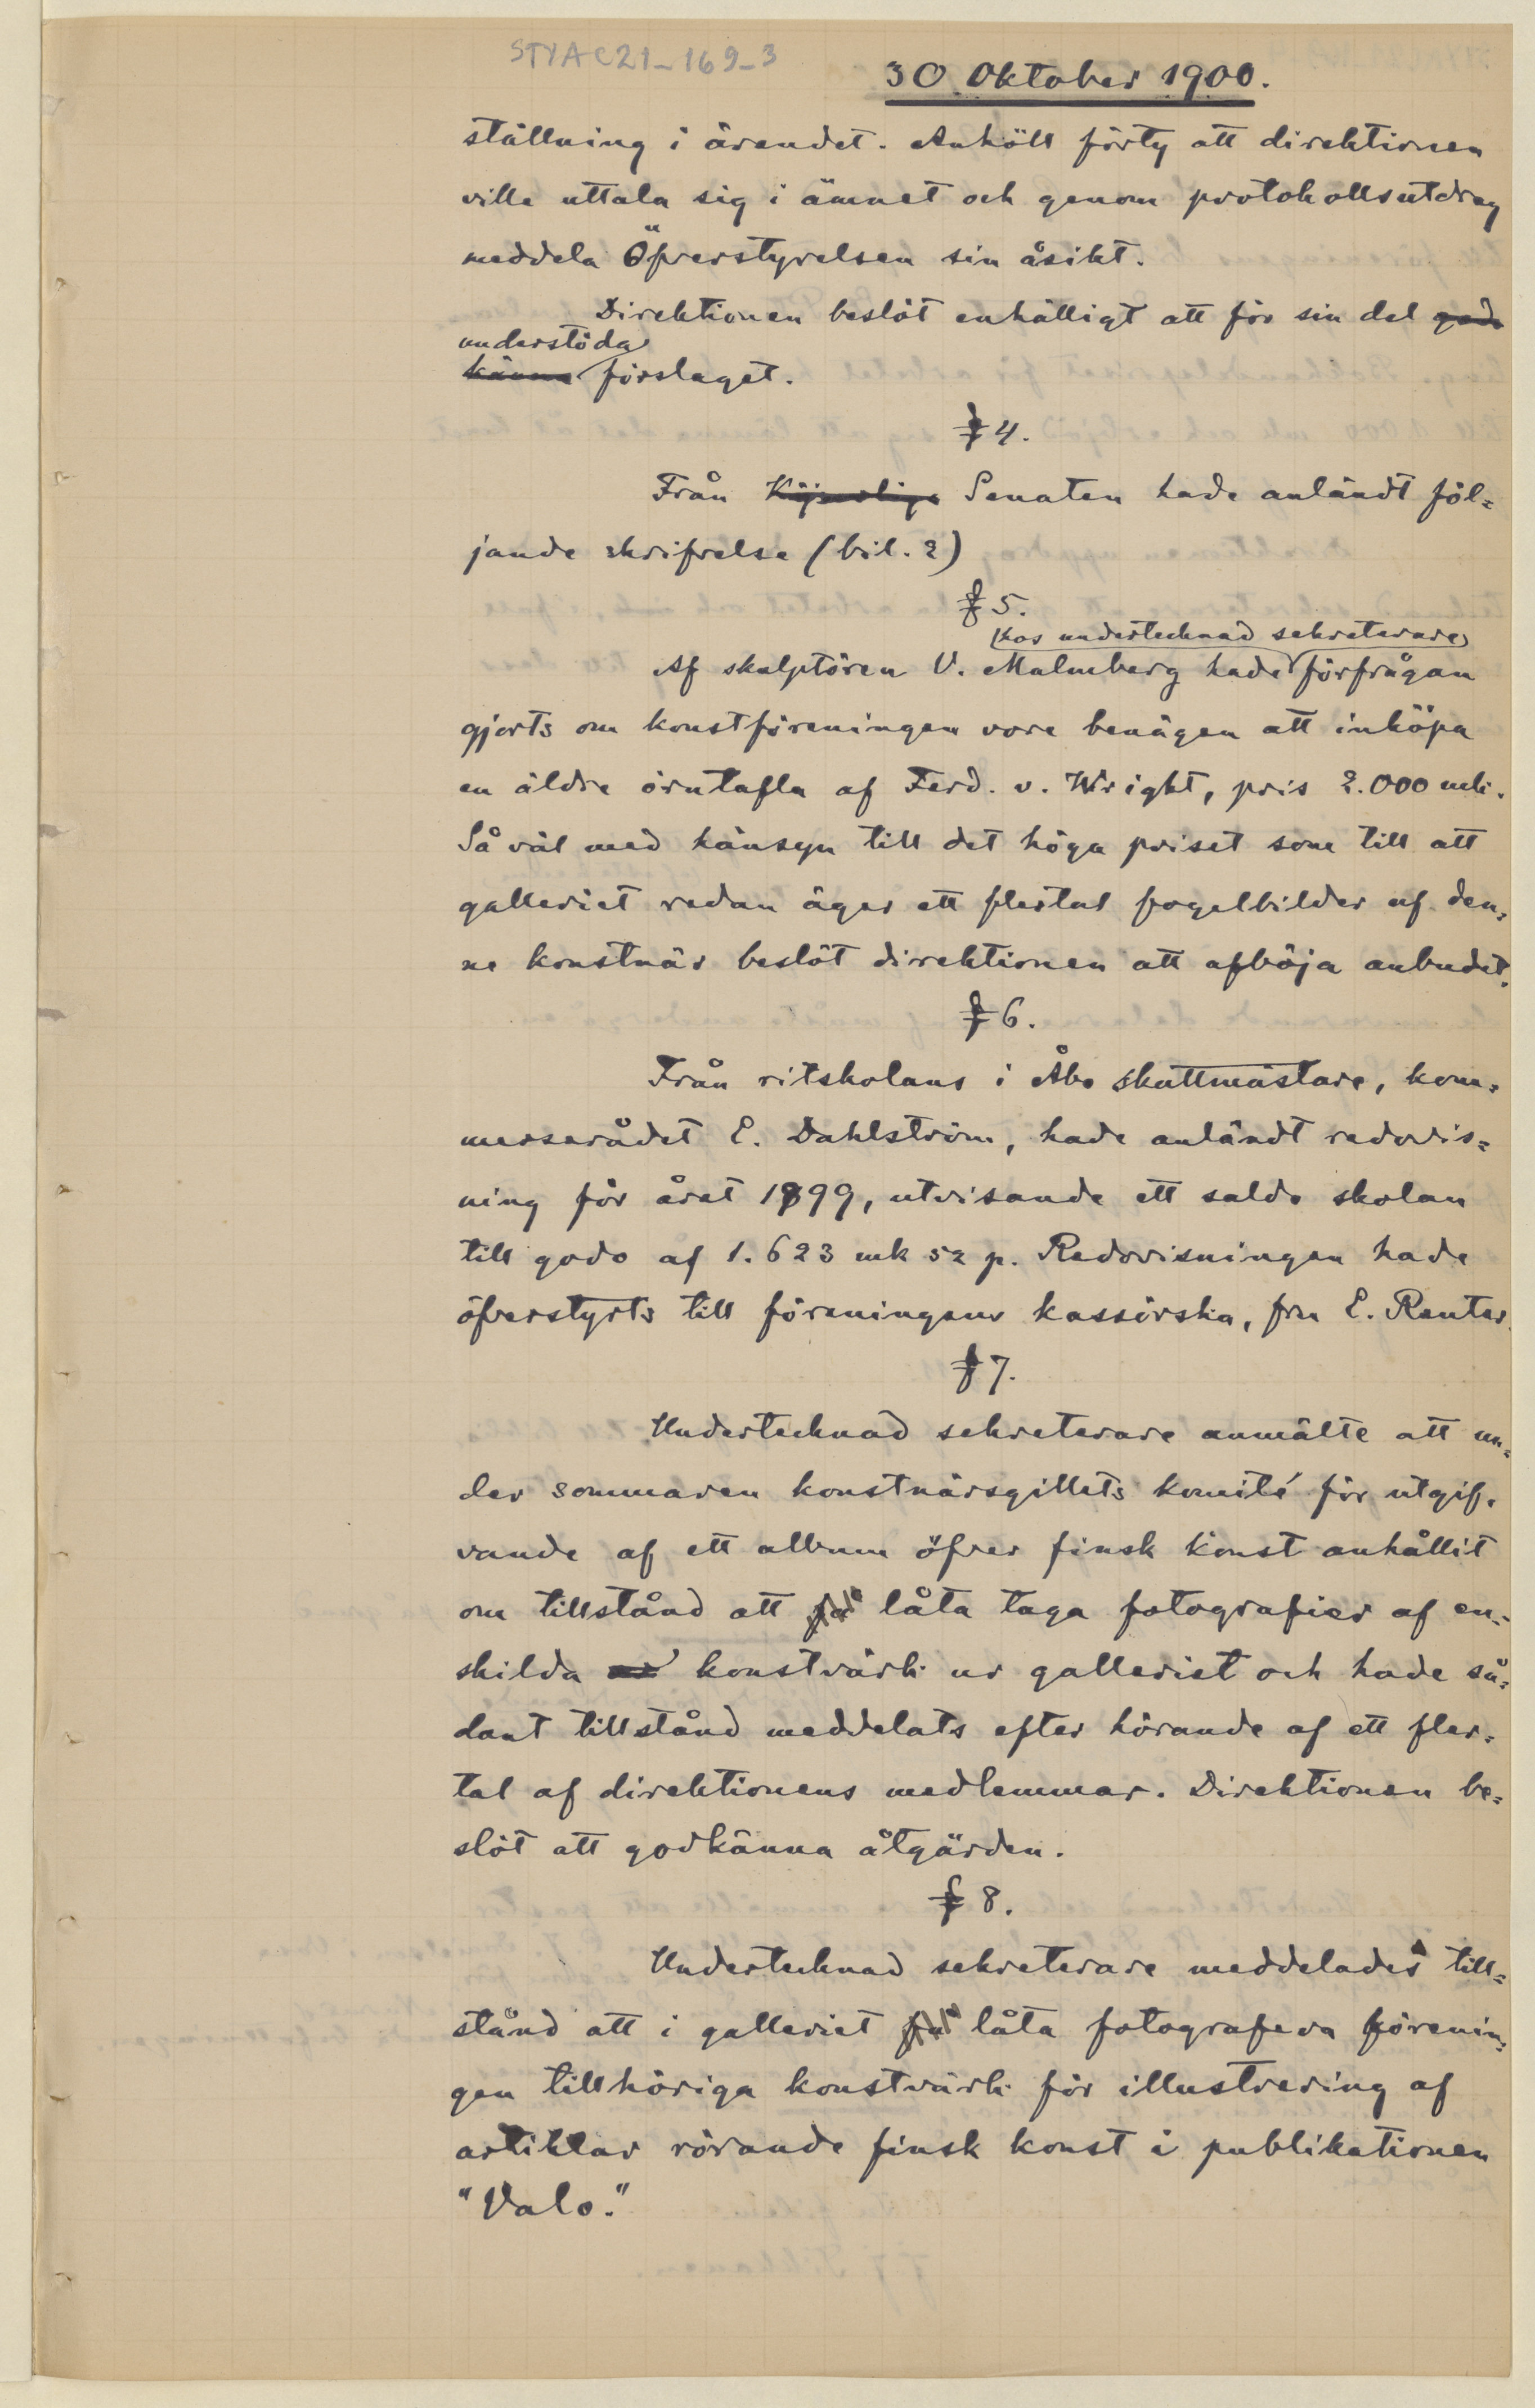 STYA C21-169-3
30 Oktober 1900.
ställning i ärendet. Anhöll förty att direktionen
ville uttala sig i ämnet och genom protokollsutdrag
meddela Öfverstyrelsen sin åsikt.
Direktionen beslöt enhälligt att för sin del god-
understöda
känna förslaget.
§ 4.
Från Kejserliga Senaten hade anländt föl=
jande skrifvelse (bil. 2)
§ 5.
hos undertecknad sekreterare
Af skulptören V. Malmberg hade förfrågan
gjorts om konstföreningen vore benägen att inköpa
en äldre örntafla af Ferd. v. Wright, pris 2.000 mk.
Så väl med hänsyn till det höga priset som till att
galleriet redan äger ett flertal fogelbilder af den=
ne konstnär beslöt direktionen att afböja anbudet.
§ 6.
Från ritskolans i Åbo skattmästare, kom=
merserådet E. Dahlström, hade anländt redovis=
ning för året 1899, utvisande ett saldo skolan
till godo af 1.623 mk 52 p. Redovisningen hade
öfverstyrts till föreningens kassörska, fru E. Reuter.
§ 7.
Undertecknad sekreterare anmälte att un=
der sommaren konstnärsgillets komité för utgif=
vande af ett album öfver finsk konst anhållit
om tillstånd att få låta taga fotografier af en=
skilda konstvärk ur galleriet och hade så=
dant tillstånd meddelats efter hörande af ett fler=
tal af direktionens medlemmar. Direktionen be=
slöt att godkänna åtgärden.
§ 8.
Undertecknad sekreterare meddelades till=
stånd att i galleriet få låta fotografera förenin=
gen tillhöriga konstvärk för illustrering af
artiklar rörande finsk konst i publikationen
"Valo."